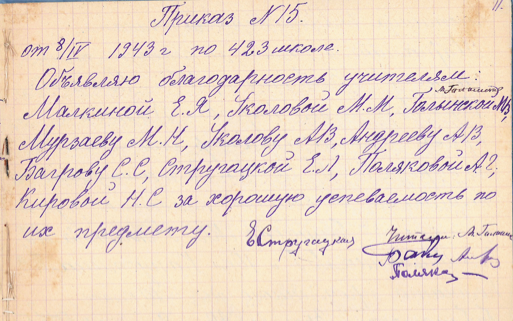 11.
Приказ N 15.
от 8/IV 1943 г по 423 школе.
Объявляю благодарность учителям:
Малкиной Е.Я, Уколовой М.М, Голынской
Мурзаеву М.Н, Уколову А.В, Андрееву А.В,
Вагрову С.С, Стругацкой Е.Л, Поляковой А.Г,
Кировой Н.С за хорошую успеваемость по
их предмету.
ЕСтругацкая
Читали: